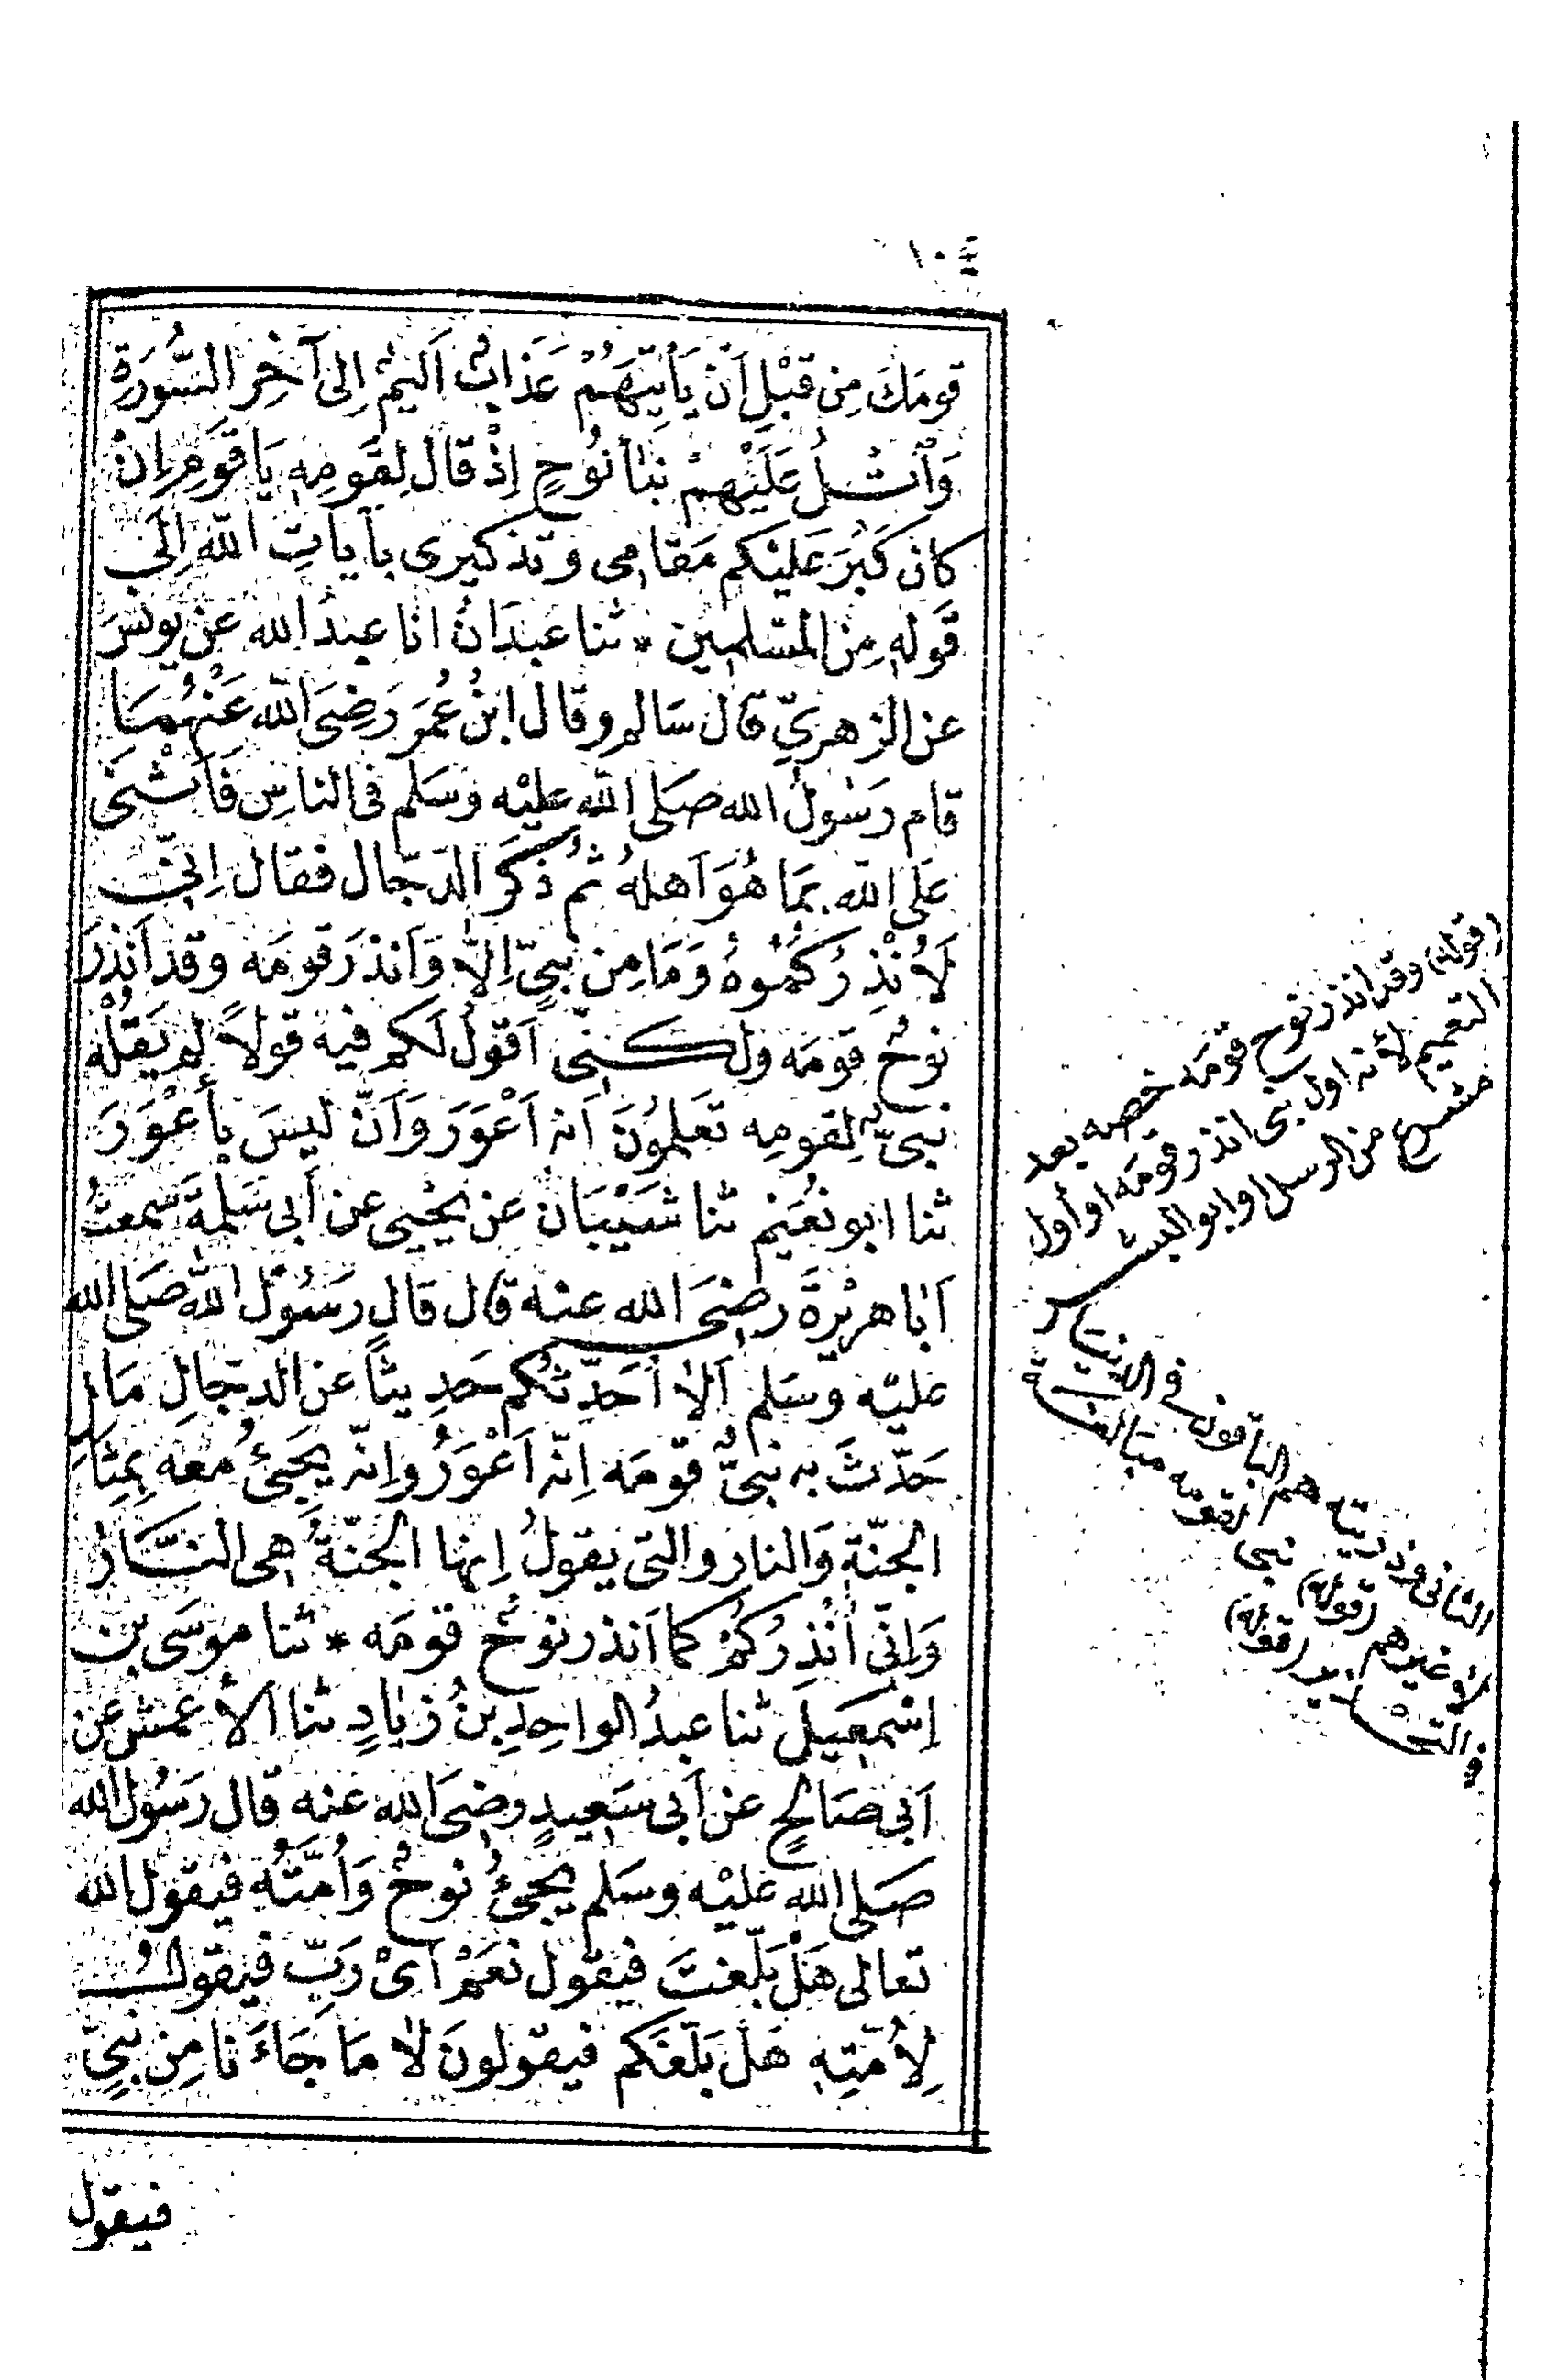 ١٠٤
قومَكَ مِن قَبْلِ اَنْ يَأْتِيَهُمْ عَذَابٌ اَلِيمٌ اِلَى آخِرِ السُّورَةِ
وَاتْلُ عَلَيْهِمْ نَبَأَ نُوحٍ اِذْ قَالَ لِقَوْمِهِ يَا قَوْمِ اِنْ
كان كَبُرَ عَلَيْكم مَقَامِى وتذكيرى بآيَاتِ اللّٰهِ اِلَى
قَوْلِهِ مِنَ المسْلمين * ثنا عَبدَانُ انا عبدُ الله عَنْ يونسَ
عن الزهرىِّ قال سَالم وقال ابنُ عُمَرَ رَضِىَ اللّٰه عَنْهُمَا
قام رَسُولُ الله صَلى اللّٰه عليْه وَسَلم فى الناسِ فَاَثْنَى
عَلى اللّٰه بمَا هُوَ اَهلهُ ثمُ ذَكَرَ الدّجّال فقال اِنِّى
لَاُنْذِرُكُمُوهُ وَمَا مِن نبىٍّ اِلاّ وَاَنذرَ قومَه وقد اَنذرَ
نوحٌ قومَه ولكنّى اَقولُ لَكم فيه قولاً لم يَقُلْه
نبىٌّ لِقومِه تَعَلمُونَ اَنه اَعْوَرَ وَاَنّ ليسَ بأَعْوَرَ
ثنا ابو نُعَيْم ثنا شَيْبَان عن يحْيى عن أَبى سَلمةَ سَمعتُ
اَبَا هريْرةَ رضىَ الله عنه قال قال رسُول اللّٰه صَلى الله
عليْه وسَلم اَلاَ اُحَدِّثكم حَدِيثاً عن الدجالِ مَا
حَدّثَ به نبىٌّ قومَه اِنّه اَعْوَرُ واِنّه يَجِىْءُ مَعَه بمِثَالِ
الجنّةِ وَالنار والتى يقولُ اِنها الجنّةُ هى النَّارُ
وَاِنّى اُنْذِرُكُمْ كما اَنذر نوحٌ قومَه * ثنا موسَى بن
اِسْمعيل ثنا عبدُ الواحِدِ بنُ زيادٍ ثنا الأعمش عن
اَبى صَالحٍ عن اَبى سَعيدٍ رضىَ الله عنه قال رَسُول الله
صَلى الله عليْه وسَلم يجىْءُ نوحٌ وَاُمَّتُه فيقول الله
تعالى هَلْ بَلّغتَ فيقول نعَمْ اَىْ رَبِّ فيقول
لِأُمّتِه هَل بَلّغَكم فيقولونَ لا مَا جَاءَنا مِن نبىٍّ
فيقول
(قوله) وقد انذر نوح قومَه خصه بعد
التعميم لأنه اول نبى انذر قومَه او أول
مشرع من الرسل او ابو البشر
الثانى وذريته هم الباقون فى الدنيا
لا غيرهم (قوله) نبى لقومه مبالغة
فى التحذير (قوله)